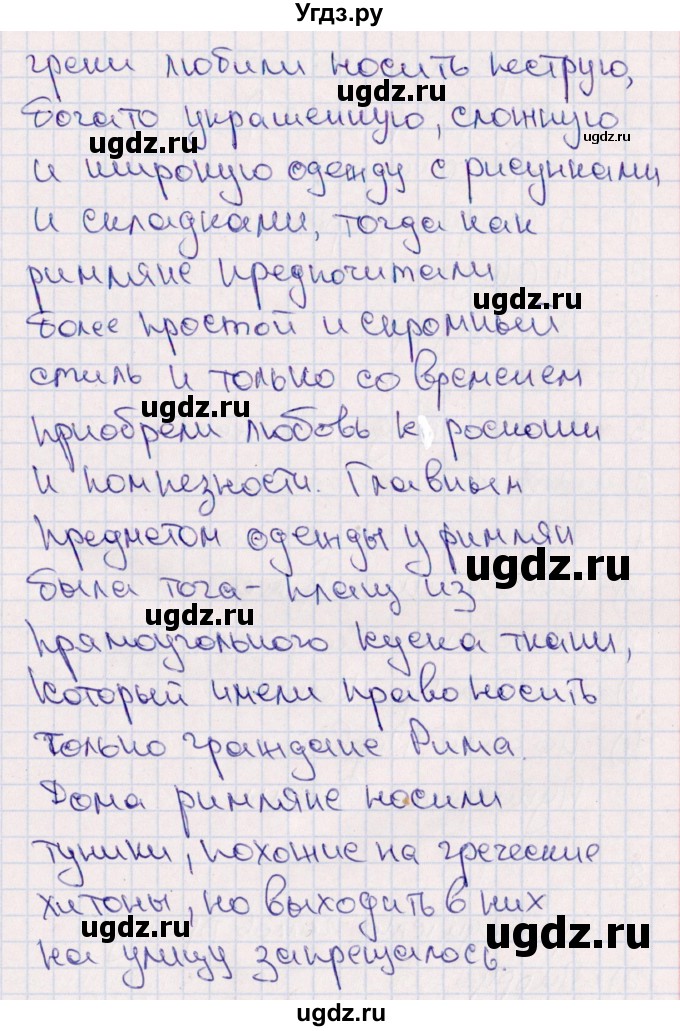 Угдз.ру
греки любили носить пеструю,
ugdz.ru
богато украшенную, сложную
ugdz.ru
ugdz.ru
и широкую одежду с рисунками
и складками, тогда как
римляне предпочитали
ugdz.ru
более простой и скромный
стиль и только со временем
ugdz.ru
приобрели любовь к роскоши
и помпезности. Главным
предметом одежды у римлян
ugdz.ru
была тога - плащ из
ugdz.ru
прямоугольного куска ткани,
который имели право носить
только граждане Рима.
ugdz.ru
Дома римляне носили
туники, похожие на греческие
хитоны, но выходить в них
ugdz.ru
ugdz.ru
на улицу запрещалось.
ugdz.ru